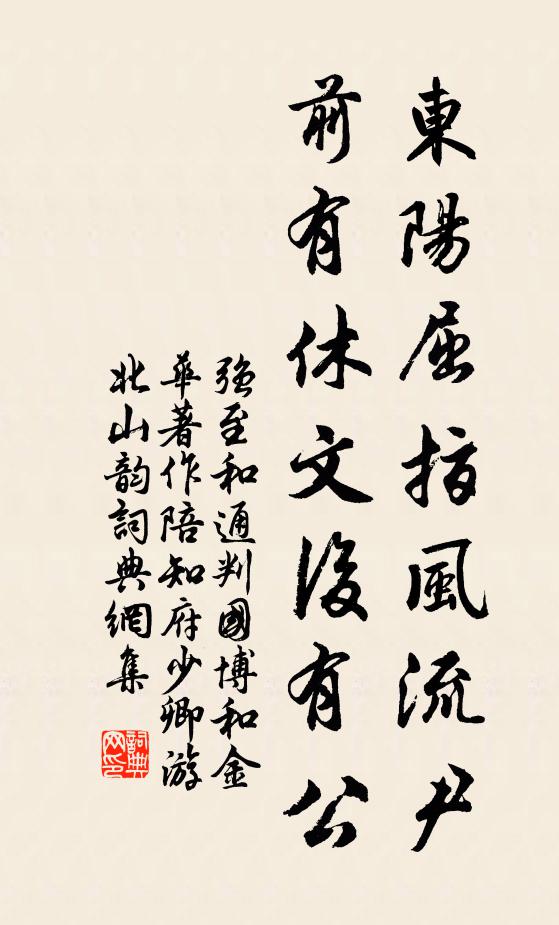 東陽屈指風流尹
前有休文後有公
強至和通判國博和金
華著作陪知府少卿游
北山韵詞典網集
詞典
网印